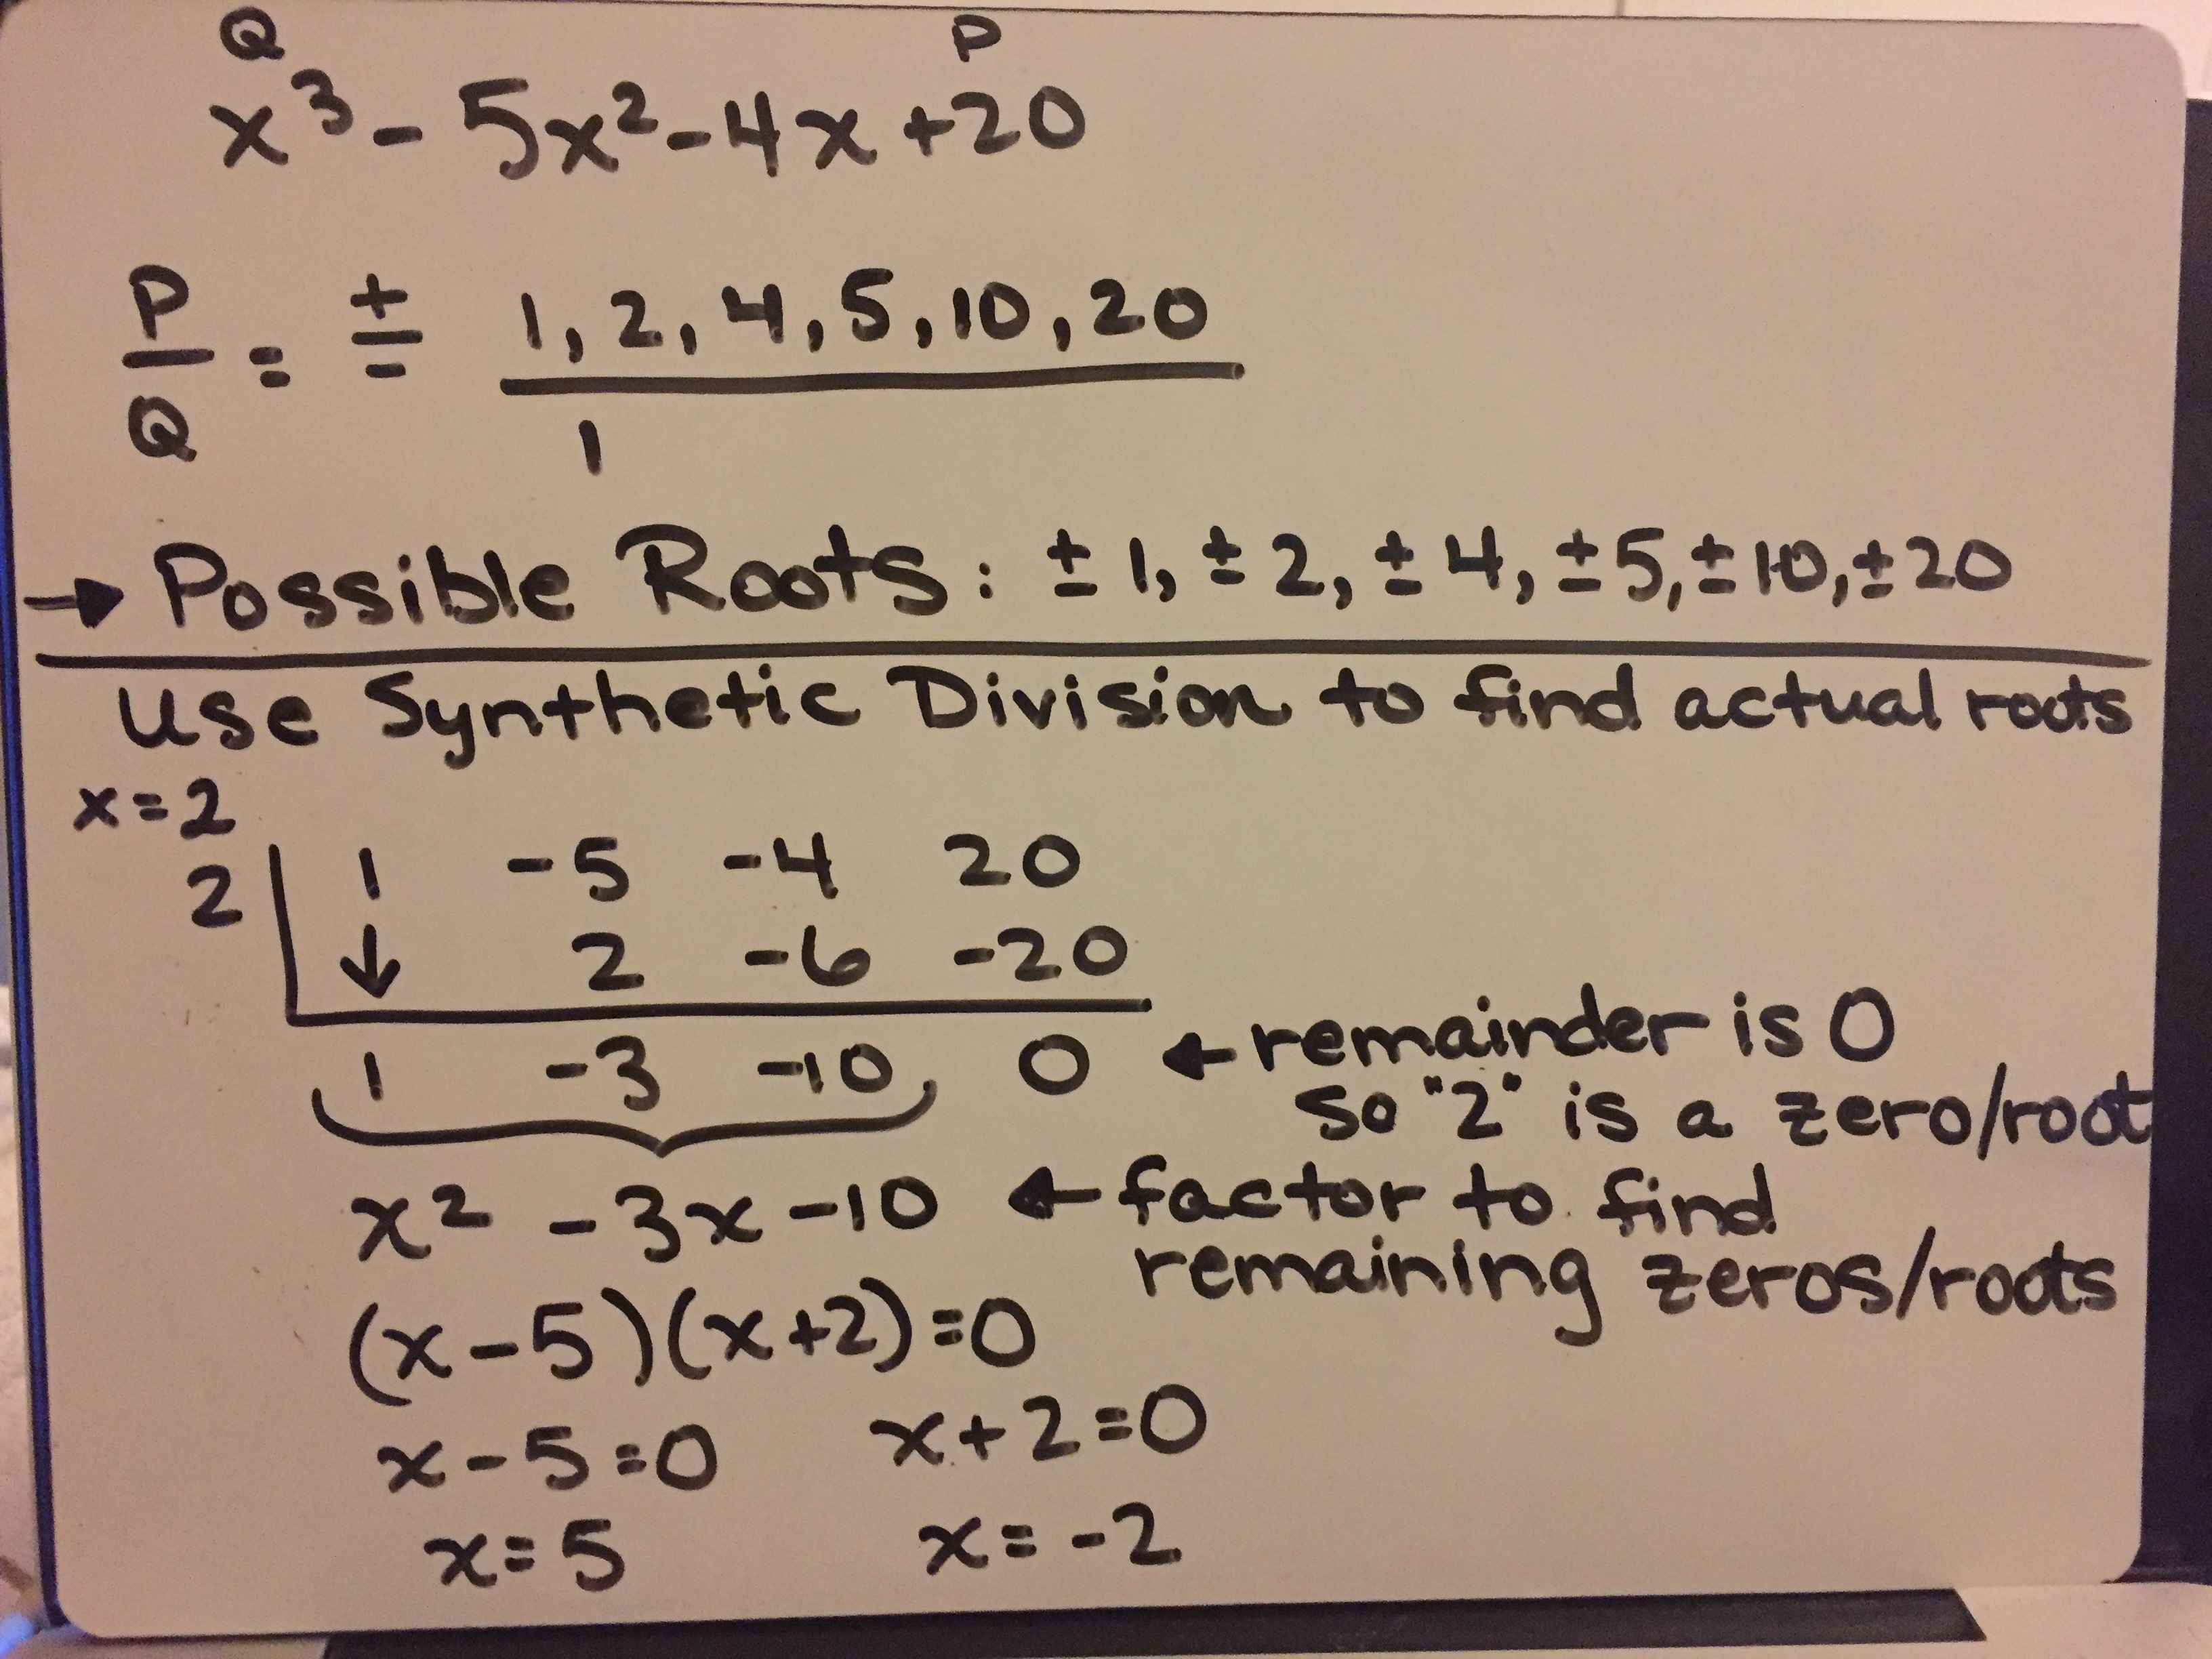 Q P
x³ - 5x² - 4x + 20
P/Q = ± 1, 2, 4, 5, 10, 20 / 1
→ Possible Roots: ±1, ±2, ±4, ±5, ±10, ±20
Use Synthetic Division to find actual roots
x=2
2 | 1 -5 -4 20
↓ 2 -6 -20
1 -3 -10 0 ← remainder is 0
so "2" is a zero/root
x² - 3x - 10 ← factor to find
remaining zeros/roots
(x-5)(x+2)=0
x-5=0 x+2=0
x=5 x=-2